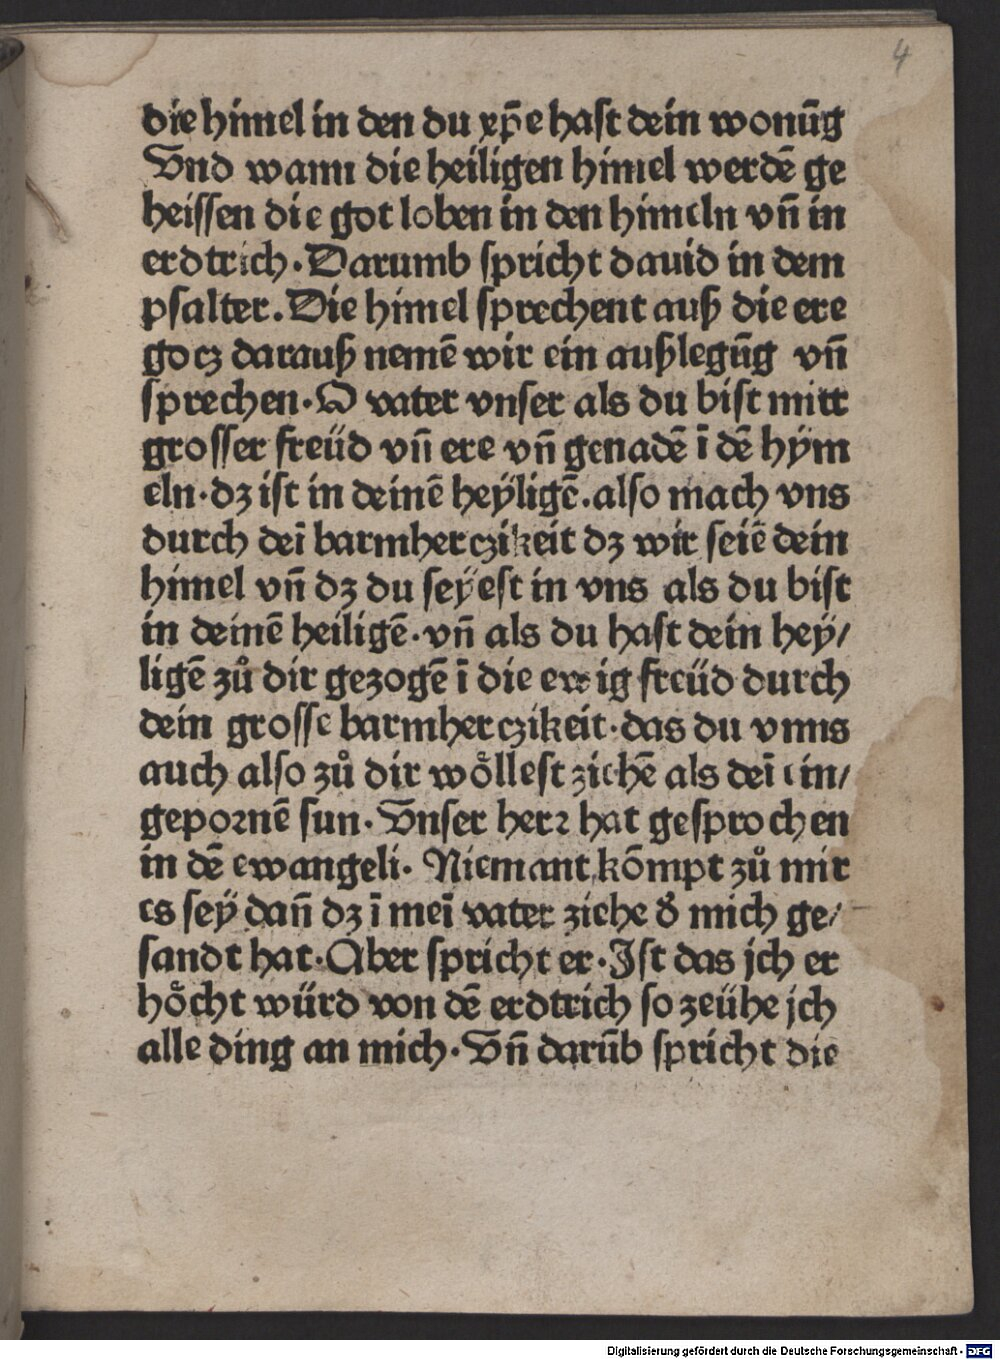 4
die himel in den du xp̄e hast dein wonūg
Vnd wann die heiligen himel werdē ge
heissen die got loben in den himeln vn̄ in
erdtrich. Darumb spricht dauid in dem
psalter. Die himel sprechent auß die ere
gocz darauß nemē wir ein außlegūg vn̄
sprechen. O vater vnser als du bist mitt
grosser freüd vn̄ ere vn̄ genadē ī dē hÿm
eln. dz ist in deinē heÿligē. also mach vns
durch deī barmherczikeit dz wir seiē dein
himel vn̄ dz du seÿest in vns als du bist
in deinē heiligē. vn̄ als du hast dein heÿ/
ligē zů dir gezogē ī die ewig freüd durch
dein grosse barmherczikeit. das du vnns
auch also zů dir wöllest ziehē als deī ein/
gepornē sun. Vnser herr hat gesprochen
in dē ewangeli. Niemant kōmpt zů mir
es seÿ dan̄ dz ī meī vater ziehe d̕ mich ge/
sandt hat. Aber spricht er. Ist das jch er
höcht würd von dē erdtrich so zeühe jch
alle ding an mich. Vn̄ darūb spricht die
Digitalisierung gefördert durch die Deutsche Forschungsgemeinschaft - DFG